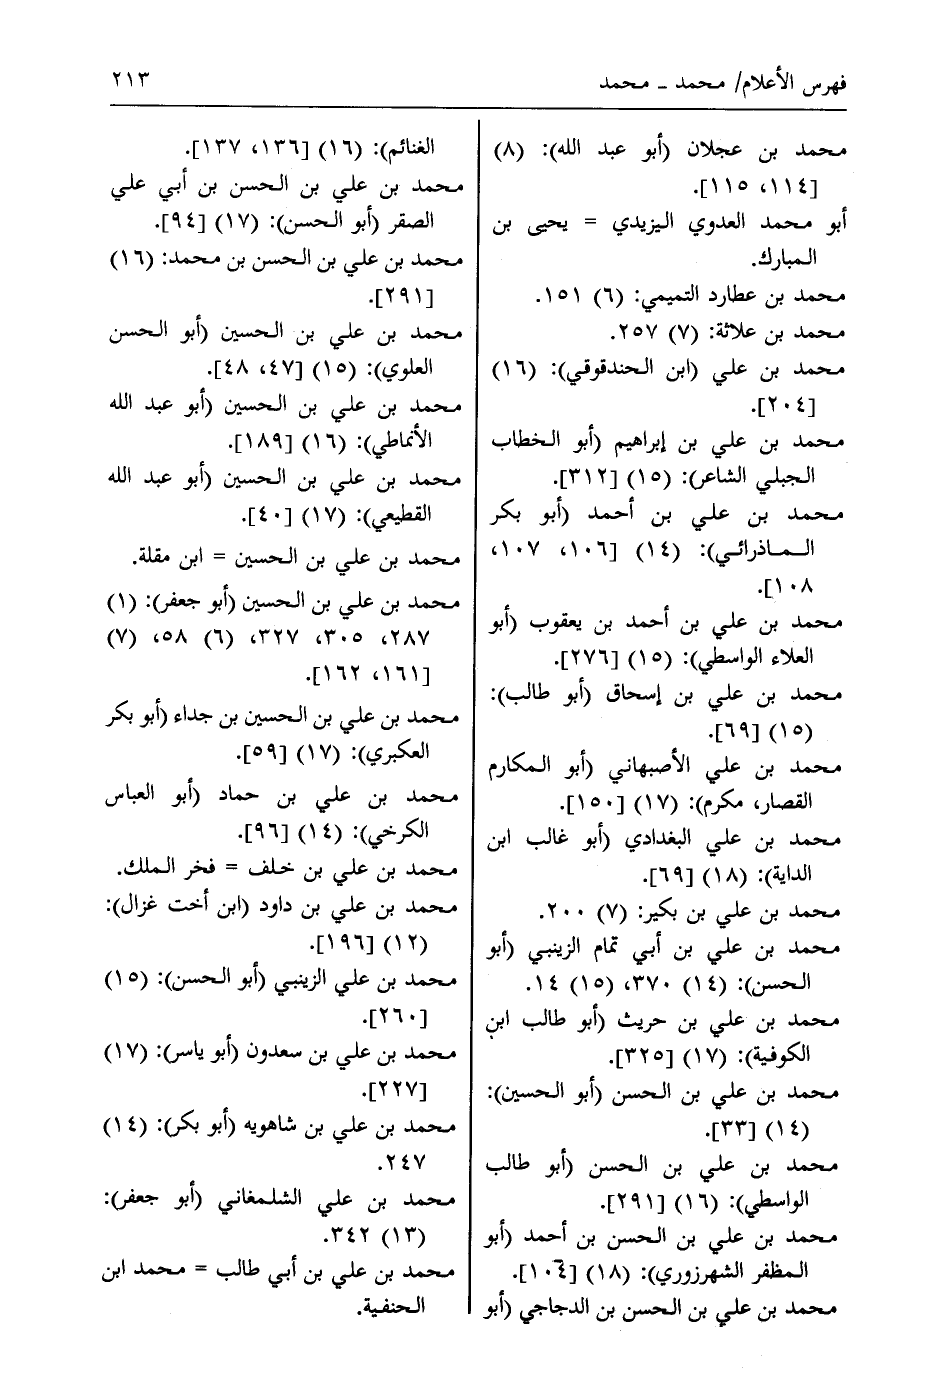 فهرس الأعلام/ محمد ـ محمد
٢١٣
محمد بن عجلان (أبو عبد الله): (٨)
[١١٤، ١١٥].
أبو محمد العدوي اليزيدي = يحيى بن
المبارك.
محمد بن عطارد التميمي: (٦) ١٥١.
محمد بن علاثة: (٧) ٢٥٧.
محمد بن علي (ابن الحندقوقي): (١٦)
[٢٠٤].
محمد بن علي بن إبراهيم (أبو الخطاب
الجبلي الشاعر): (١٥) [٣١٢].
محمد بن علي بن أحمد (أبو بكر
الماذرائي): (١٤) [١٠٦، ١٠٧،
١٠٨].
محمد بن علي بن أحمد بن يعقوب (أبو
العلاء الواسطي): (١٥) [٢٧٦].
محمد بن علي بن إسحاق (أبو طالب):
(١٥) [٦٩].
محمد بن علي الأصبهاني (أبو المكارم
القصار، مكرم): (١٧) [١٥٠].
محمد بن علي البغدادي (أبو غالب ابن
الداية): (١٨) [٦٩].
محمد بن علي بن بكير: (٧) ٢٠٠.
محمد بن علي بن أبي تمام الزينبي (أبو
الحسن): (١٤) ٣٧٠، (١٥) ١٤.
محمد بن علي بن حريث (أبو طالب ابن
الكوفية): (١٧) [٣٢٥].
محمد بن علي بن الحسن (أبو الحسين):
(١٤) [٣٣].
محمد بن علي بن الحسن (أبو طالب
الواسطي): (١٦) [٢٩١].
محمد بن علي بن الحسن بن أحمد (أبو
المظفر الشهرزوري): (١٨) [١٠٤].
محمد بن علي بن الحسن بن الدجاجي (أبو
الغنائم): (١٦) [١٣٦، ١٣٧].
محمد بن علي بن الحسن بن أبي علي
الصقر (أبو الحسن): (١٧) [٩٤].
محمد بن علي بن الحسن بن محمد: (١٦)
[٢٩١].
محمد بن علي بن الحسين (أبو الحسن
العلوي): (١٥) [٤٧، ٤٨].
محمد بن علي بن الحسين (أبو عبد الله
الأنماطي): (١٦) [١٨٩].
محمد بن علي بن الحسين (أبو عبد الله
القطيعي): (١٧) [٤٠].
محمد بن علي بن الحسين = ابن مقلة.
محمد بن علي بن الحسين (أبو جعفر): (١)
٢٨٧، ٣٠٥، ٣٢٧، (٦) ٥٨، (٧)
[١٦١، ١٦٢].
محمد بن علي بن الحسين بن جداء (أبو بكر
العكبري): (١٧) [٥٩].
محمد بن علي بن حماد (أبو العباس
الكرخي): (١٤) [٩٦].
محمد بن علي بن خلف = فخر الملك.
محمد بن علي بن داود (ابن أخت غزال):
(١٢) [١٩٦].
محمد بن علي الزينبي (أبو الحسن): (١٥)
[٢٦٠].
محمد بن علي بن سعدون (أبو ياسر): (١٧)
[٢٢٧].
محمد بن علي بن شاهويه (أبو بكر): (١٤)
٢٤٧.
محمد بن علي الشلمغاني (أبو جعفر):
(١٣) ٣٤٢.
محمد بن علي بن أبي طالب = محمد ابن
الحنفية.